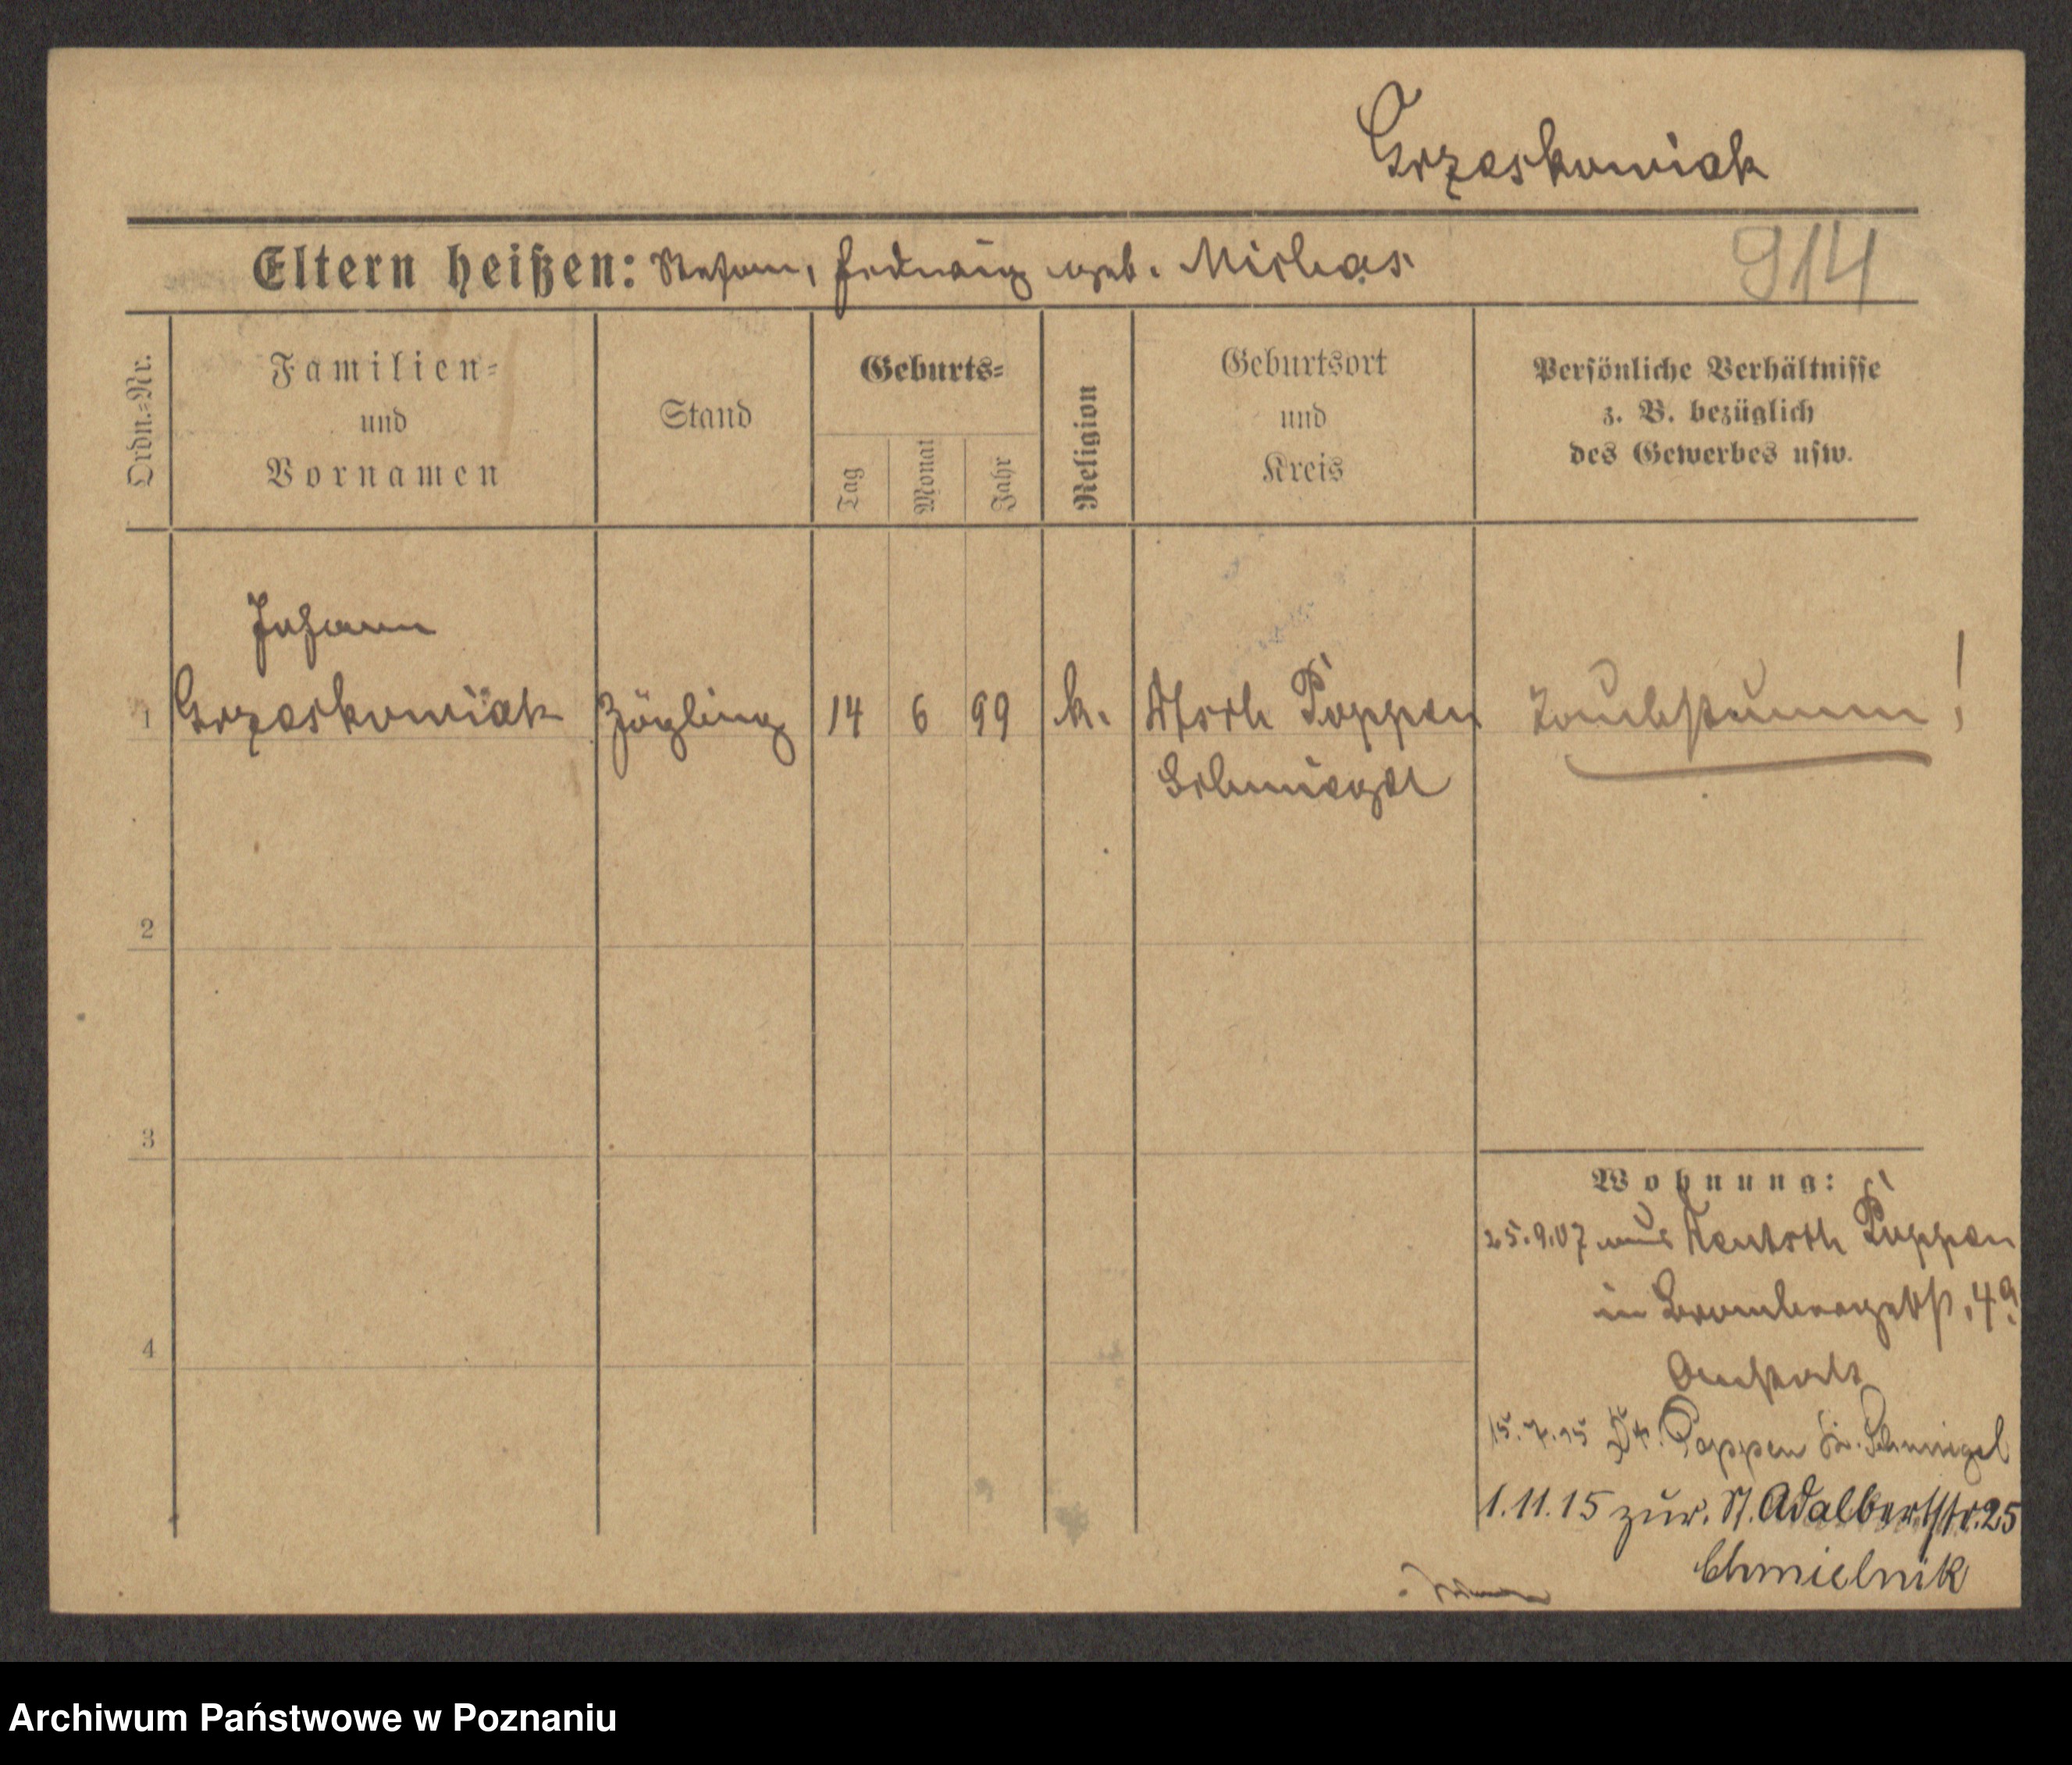 Grzeskowiak
Eltern heißen: Stefan, Hedwig geb. Michas
914
Ordn.=Nr.
Familien=
und
Vornamen
Stand
Geburts=
Tag
Monat
Jahr
Religion
Geburtsort
und
Kreis
Persönliche Verhältnisse
z. B. bezüglich
des Gewerbes usw.
Johann
1 Grzeskowiak Zögling 14 6 99 k. Dtsch Poppen Taubstumm!
Schmiegel
2
3
4
Wohnung:
25.9.07 aus Deutsch Poppen
in Brombergerstr. 4a
Anstalt
15.7.15 Dt. Poppen Kr. Schmiegel
1.11.15 zur. St. Adalbertstr. 25
Chmielnik
Archiwum Państwowe w Poznaniu